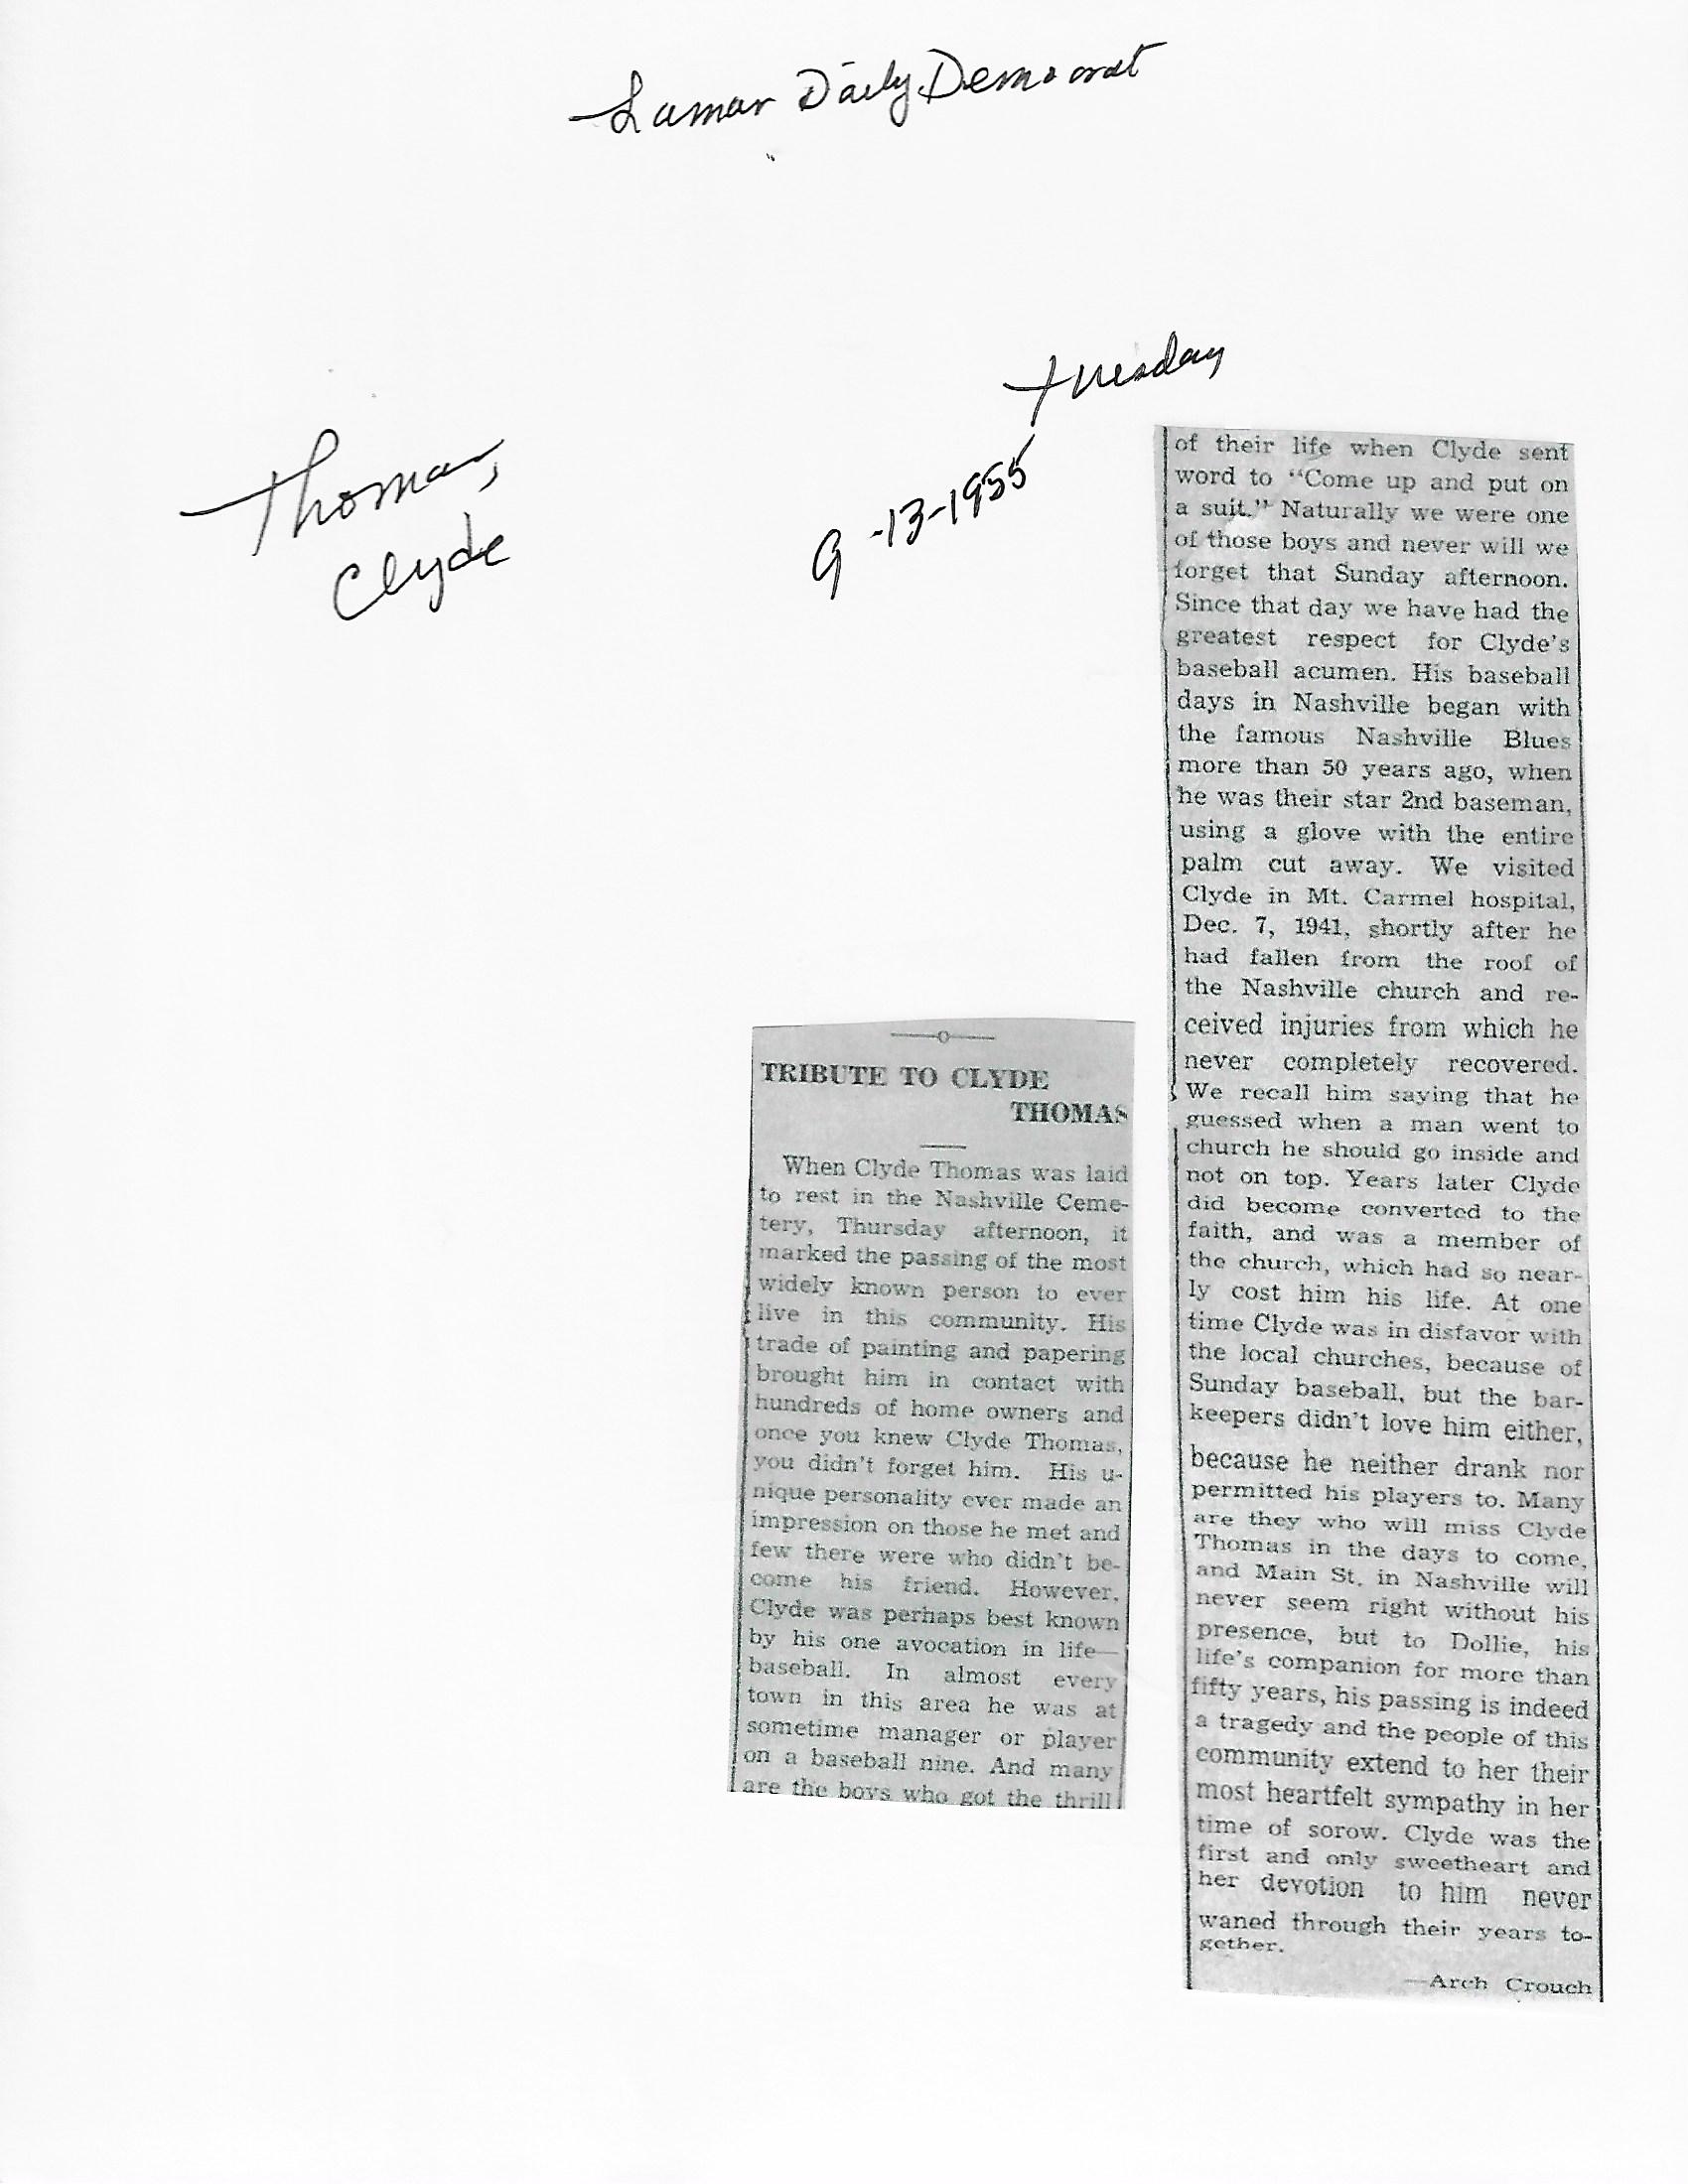 Lamar Daily Democrat
Tuesday
9-13-1955
Thomas,
Clyde
TRIBUTE TO CLYDE
THOMAS
When Clyde Thomas was laid
to rest in the Nashville Ceme-
tery, Thursday afternoon, it
marked the passing of the most
widely known person to ever
live in this community. His
trade of painting and papering
brought him in contact with
hundreds of home owners and
once you knew Clyde Thomas,
you didn't forget him. His u-
nique personality ever made an
impression on those he met and
few there were who didn't be-
come his friend. However,
Clyde was perhaps best known
by his one avocation in life—
baseball. In almost every
town in this area he was at
sometime manager or player
on a baseball nine. And many
are the boys who got the thrill
of their life when Clyde sent
word to "Come up and put on
a suit." Naturally we were one
of those boys and never will we
forget that Sunday afternoon.
Since that day we have had the
greatest respect for Clyde's
baseball acumen. His baseball
days in Nashville began with
the famous Nashville Blues
more than 50 years ago, when
he was their star 2nd baseman,
using a glove with the entire
palm cut away. We visited
Clyde in Mt. Carmel hospital,
Dec. 7, 1941, shortly after he
had fallen from the roof of
the Nashville church and re-
ceived injuries from which he
never completely recovered.
We recall him saying that he
guessed when a man went to
church he should go inside and
not on top. Years later Clyde
did become converted to the
faith, and was a member of
the church, which had so near-
ly cost him his life. At one
time Clyde was in disfavor with
the local churches, because of
Sunday baseball, but the bar-
keepers didn't love him either,
because he neither drank nor
permitted his players to. Many
are they who will miss Clyde
Thomas in the days to come,
and Main St. in Nashville will
never seem right without his
presence, but to Dollie, his
life's companion for more than
fifty years, his passing is indeed
a tragedy and the people of this
community extend to her their
most heartfelt sympathy in her
time of sorow. Clyde was the
first and only sweetheart and
her devotion to him never
waned through their years to-
gether.
—Arch Crouch